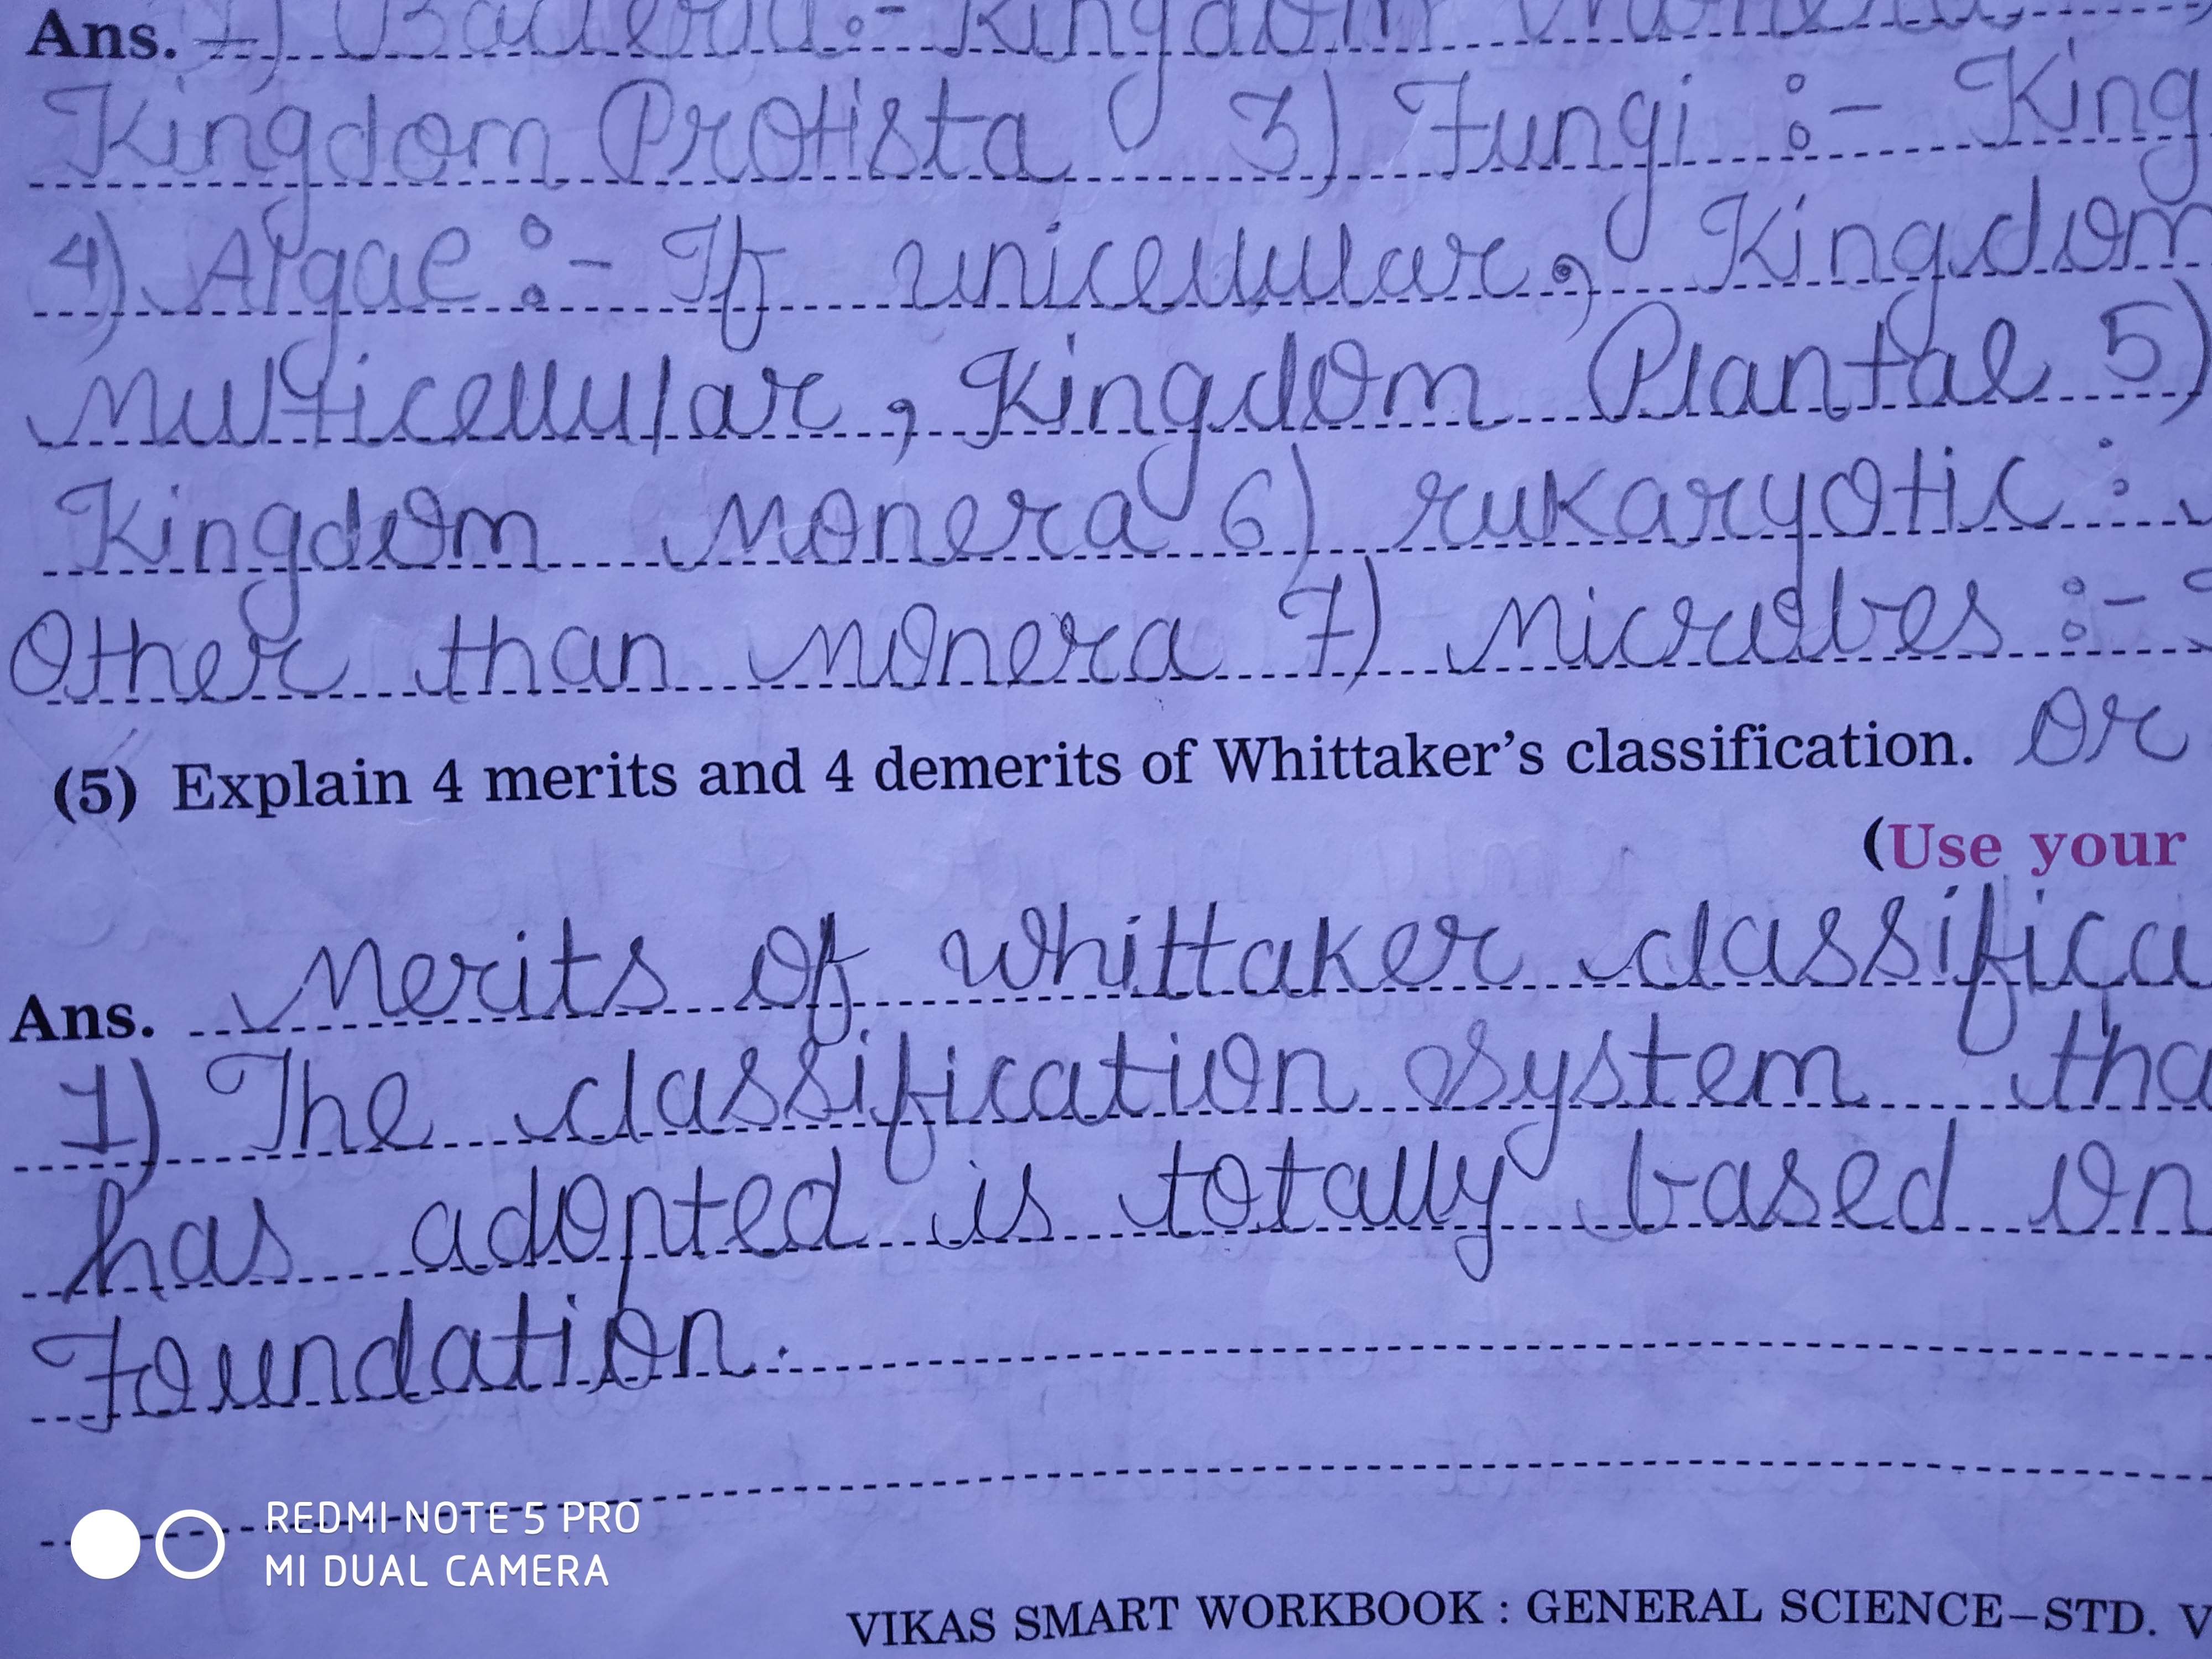 Ans. 1) Bacteria :- Kingdom Monera
Kingdom Protista 3) Fungi :- King
4) Algae :- If unicellular, Kingdom
Multicellular, Kingdom Plantae 5)
Kingdom Monera 6) Eukaryotic :
Other than Monera 7) Microbes :-
(5) Explain 4 merits and 4 demerits of Whittaker's classification. Or
(Use your
Ans. Merits of Whittaker classifica
1) The classification system tha
has adopted is totally based on
Foundation.
REDMI NOTE 5 PRO
MI DUAL CAMERA
VIKAS SMART WORKBOOK : GENERAL SCIENCE–STD. V